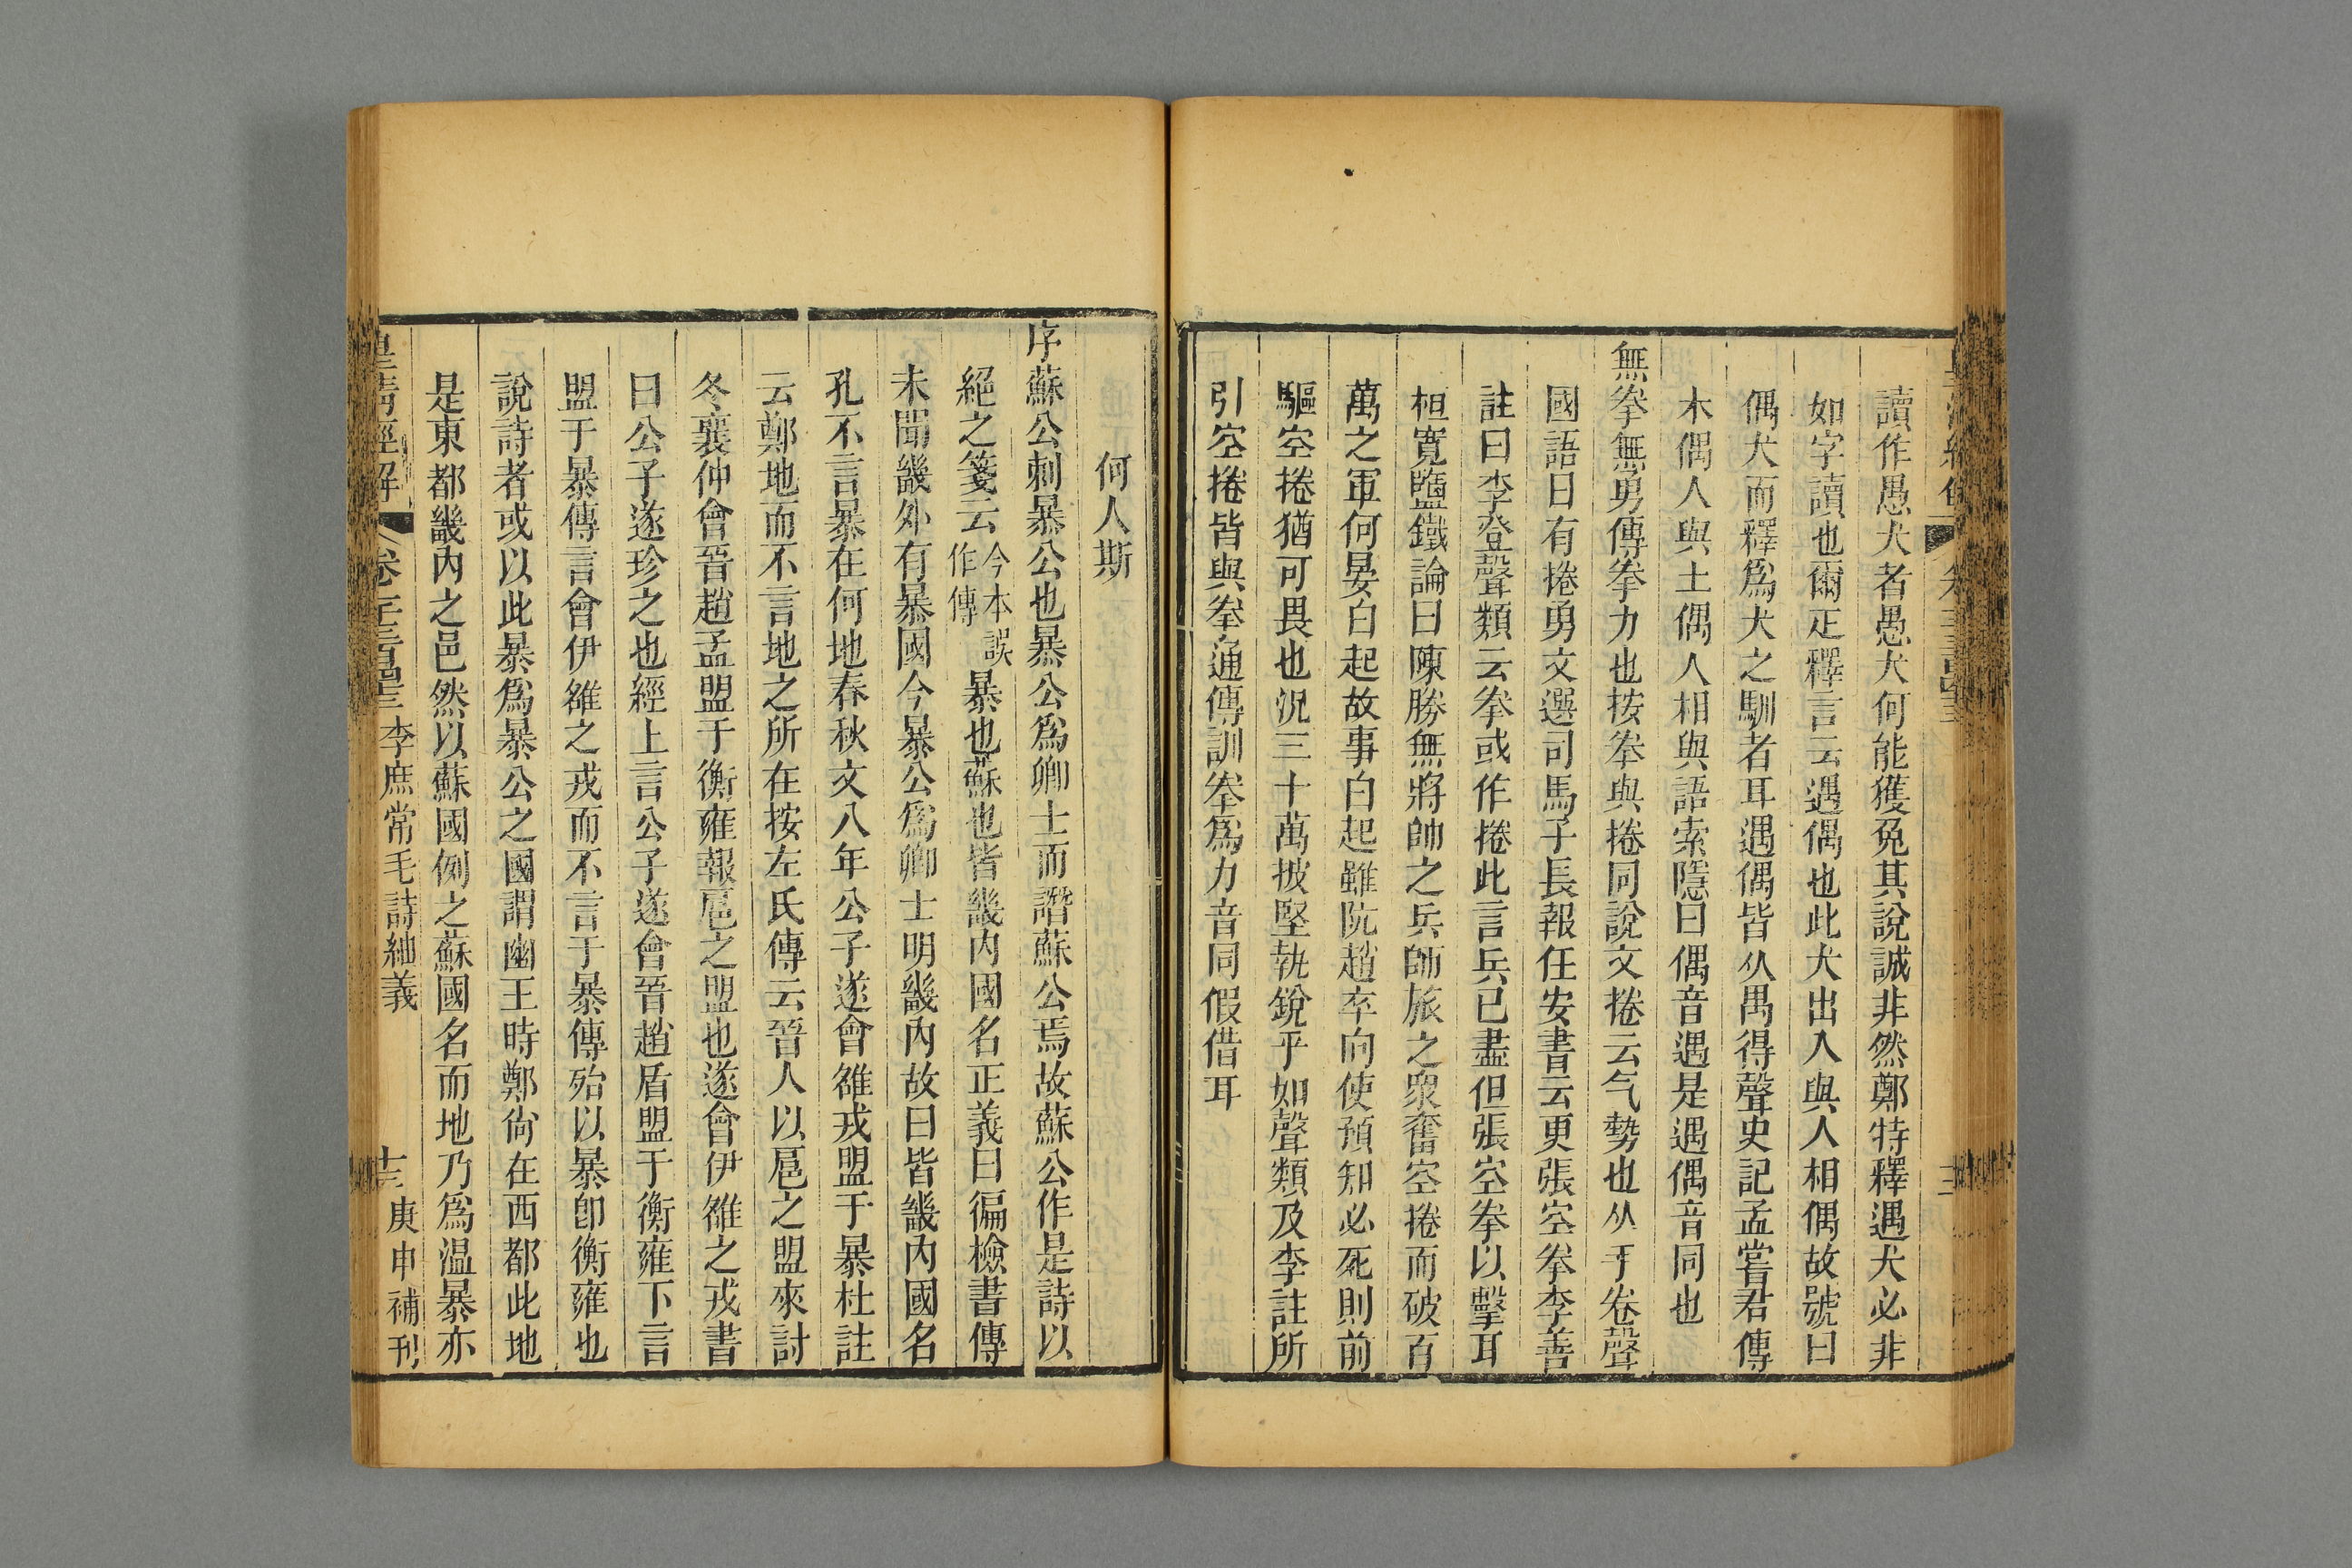 讀作愚犬者愚犬何能獲兔其說誠非然鄭特釋遇犬必非
如字讀也爾疋釋言云遇偶也此犬出入與人相偶故號曰
偶犬而釋爲犬之馴者耳遇偶皆从禺得聲史記孟嘗君傳
木偶人與土偶人相與語索隱曰偶音遇是遇偶音同也
無拳無勇傳拳力也按拳與捲同說文捲云气勢也从手卷聲
國語曰有捲勇文選司馬子長報任安書云更張空拳李善
註曰李登聲類云拳或作捲此言兵已盡但張空拳以擊耳
桓寬鹽鐵論曰陳勝無將帥之兵師旅之衆奮空捲而破百
萬之軍何晏白起故事白起雖阬趙卒向使預知必死則前
驅空捲猶可畏也況三十萬披堅執銳乎如聲類及李註所
引空捲皆與拳通傳訓拳爲力音同假借耳
何人斯
序蘇公刺暴公也暴公爲卿士而譖蘇公焉故蘇公作是詩以
絕之箋云今本誤作傳暴也蘇也皆畿內國名正義曰徧檢書傳
未聞畿外有暴國今暴公爲卿士明畿內故曰皆畿內國名
孔不言暴在何地春秋文八年公子遂會雒戎盟于暴杜註
云鄭地而不言地之所在按左氏傳云晉人以扈之盟來討
冬襄仲會晉趙孟盟于衡雍報扈之盟也遂會伊雒之戎書
曰公子遂珍之也經上言公子遂會晉趙盾盟于衡雍下言
盟于暴傳言會伊雒之戎而不言于暴傳殆以暴卽衡雍也
說詩者或以此暴爲暴公之國謂幽王時鄭尙在西都此地
是東都畿內之邑然以蘇國例之蘇國名而地乃爲温暴亦
皇清經解 李庶常毛詩紬義 十三 庚申補刊